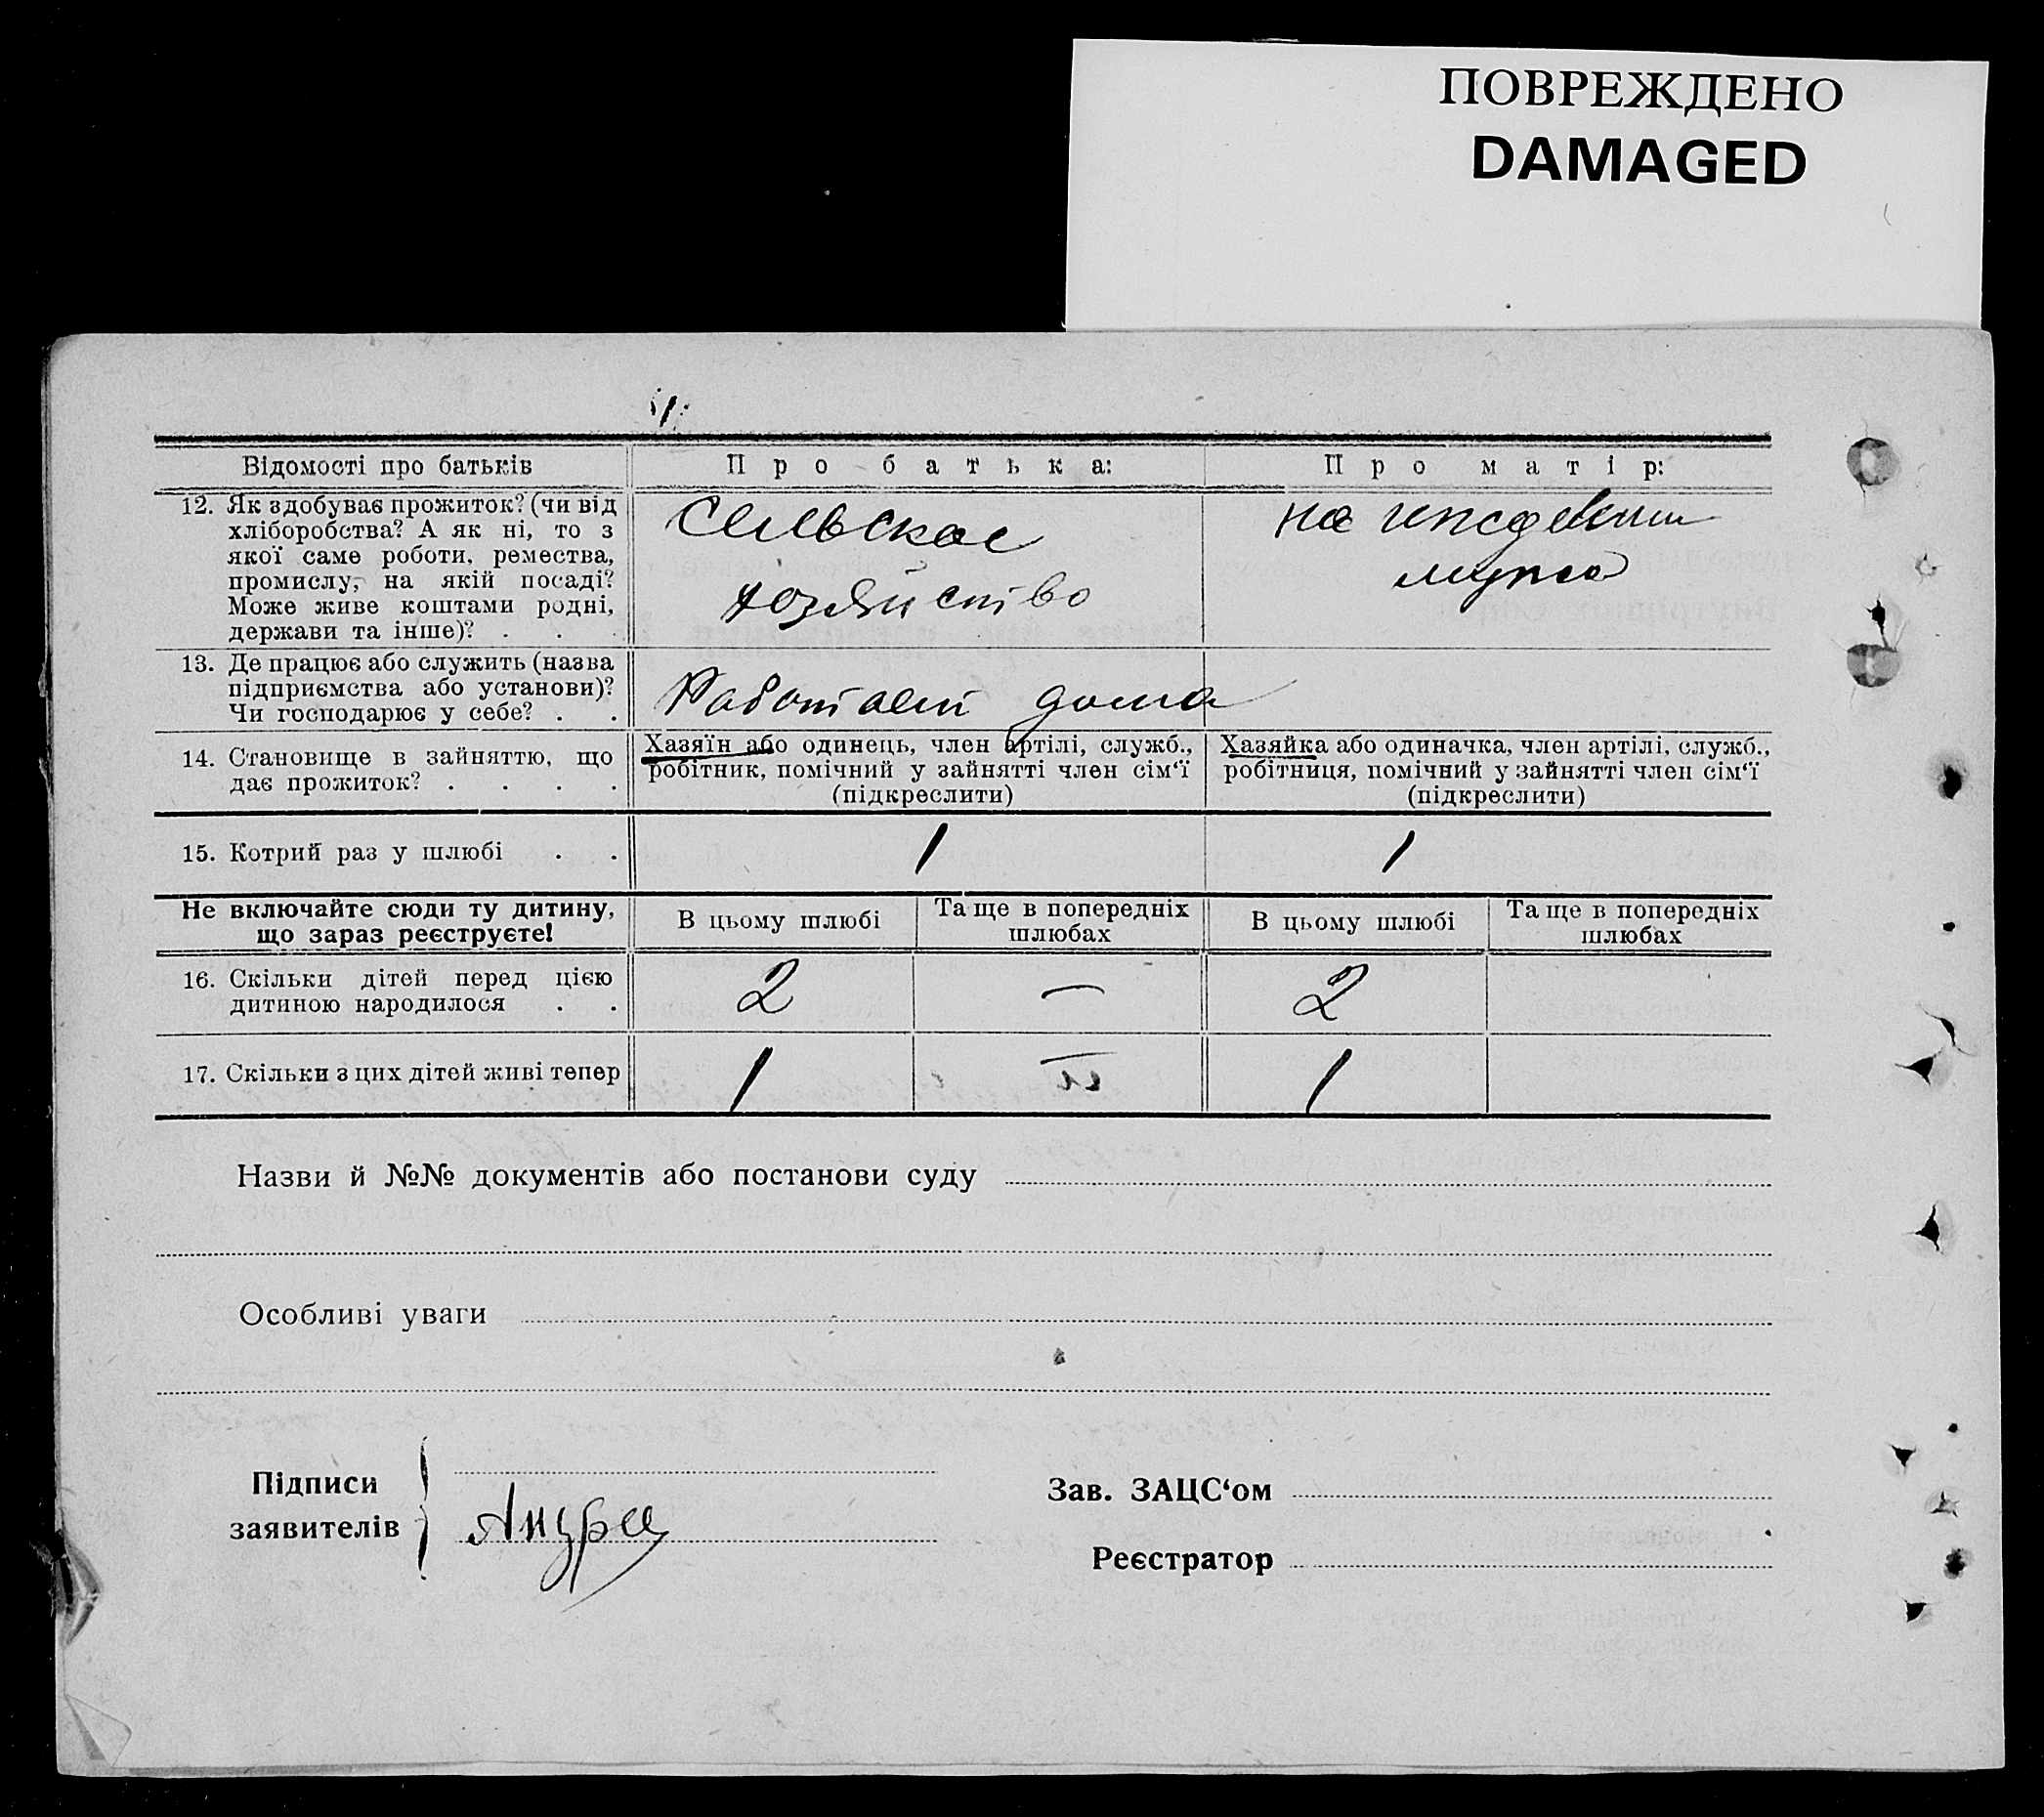 ПОВРЕЖДЕНО
DAMAGED
Відомості про батьків
Про батька:
Про матір:
12. Як здобуває прожиток? (чи від
хліборобства? А як ні, то з
якої саме роботи, ремества,
промислу, на якій посаді?
Може живе коштами родні,
держави та інше)? . . .
Сельское
хозяйство
на иждевении
мужа
13. Де працює або служить (назва
підприємства або установи)?
Чи господарює у себе? . .
Работает дома
14. Становище в зайняттю, що
дає прожиток? . . . .
Хазяїн або одинець, член артілі, служб.,
робітник, помічний у зайнятті член сім‘ї
(підкреслити)
Хазяйка або одиначка, член артілі, служб.,
робітниця, помічний у зайнятті член сім‘ї
(підкреслити)
15. Котрий раз у шлюбі . .
1
1
Не включайте сюди ту дитину,
що зараз реєструєте!
В цьому шлюбі
Та ще в попередніх
шлюбах
В цьому шлюбі
Та ще в попередніх
шлюбах
16. Скільки дітей перед цією
дитиною народилося . .
2
—
2
17. Скільки з цих дітей живі тепер
1
1
Назви й №№ документів або постанови суду
Особливі уваги
Підписи
заявителів
Зав. ЗАЦС‘ом
Реєстратор